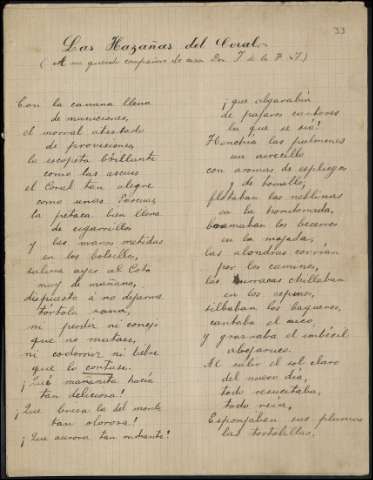 33
Las Hazañas del Coral
(A mi querido compañero de caza Don J. de la P. y)
Con la canana llena
de municiones,
el morral atestado
de provisiones,
la escopeta brillante
como las ascuas
el Coral tan alegre
como unas Pascuas,
la petaca bien llena
de cigarrillos
y las manos metidas
en los bolsillos,
salime ayer al Coto
muy de mañana,
dispuesto á no dejarme
tórtola sana,
ni perdiz ni conejo
que no matase,
ni codorniz ni liebre
que lo contase.
¡Qué mañanita hacía
tan deliciosa!
¡Que brisa la del monte
tan olorosa!
¡Que aurora tan radiante!
¡que algarabía
de pájaros cantores
la que se oía!
Henchía los pulmones
un airecillo
con aromas de espliego
y de tomillo;
flotaban las neblinas
en la hondonada,
bramaban los becerros
en la majada,
las alondras corrían
por los caminos,
las urracas chillaban
en los espinos,
silbaban los vaqueros,
cantaba el cuco,
y graznaba el imbécil
abejaruco.
Al salir el sol claro
del nuevo día,
todo resucitaba,
todo reía,
Esponjaban sus plumas
las tortolillas,